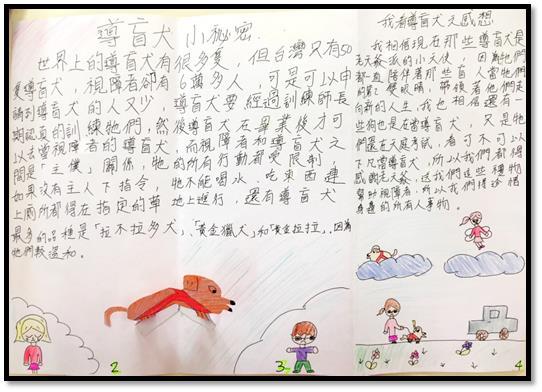 導盲犬小秘密
世界上的導盲犬有很多隻，但台灣只有50
隻導盲犬，視障者卻有6萬多人，可是可以申
請到導盲犬的人又少，導盲犬要經過訓練師長
期認真的訓練牠們，然後導盲犬在畢業後才可
以去當視障者的導盲犬，而視障者和導盲犬之
間是「主僕」關係，牠的所有行動都受限制，
如果沒有主人下指令，牠不能喝水、吃東西連
上廁所都得在指定的草地上進行，還有導盲犬
最多的品種是「拉不拉多犬」、「黃金獵犬」和「黃金拉拉」，因為
牠們較溫和。
我看導盲犬之感想
我相信現在那些導盲犬是
老天爺派的小天使，因為牠們
都一直陪伴著那些盲人當牠們
的第二雙眼睛，帶領著他們走
向新的人生，我也相信還有一
些狗也是在當導盲犬，只是牠
們還在天庭考試，看可不可以
下凡當導盲犬，所以我們都得
感謝老天爺，送我們這些禮物
幫助視障者，所以我們得珍惜
身邊的所有人事物。
2
3
4